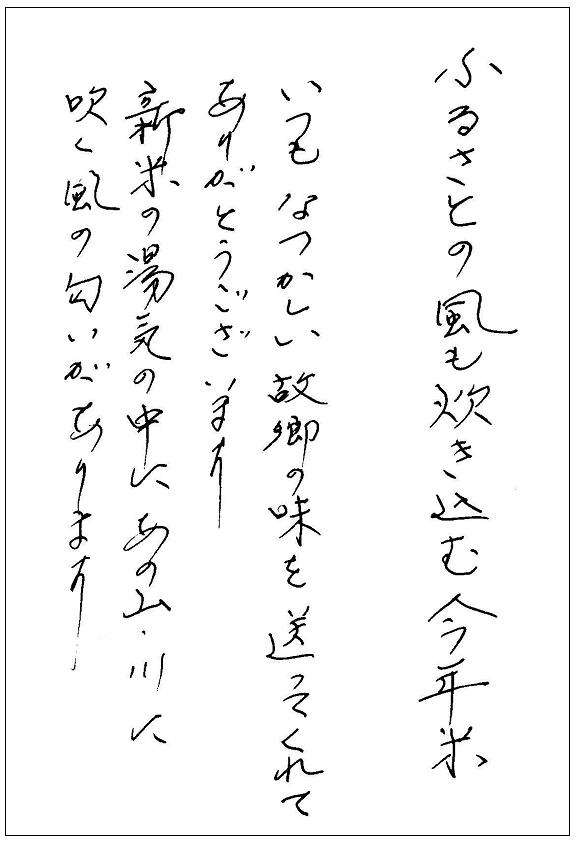 ふるさとの風も炊き込む今年米
いつもなつかしい故郷の味を送ってくれて
ありがとうございます
新米の湯気の中にあの山・川に
吹く風の匂いがあります